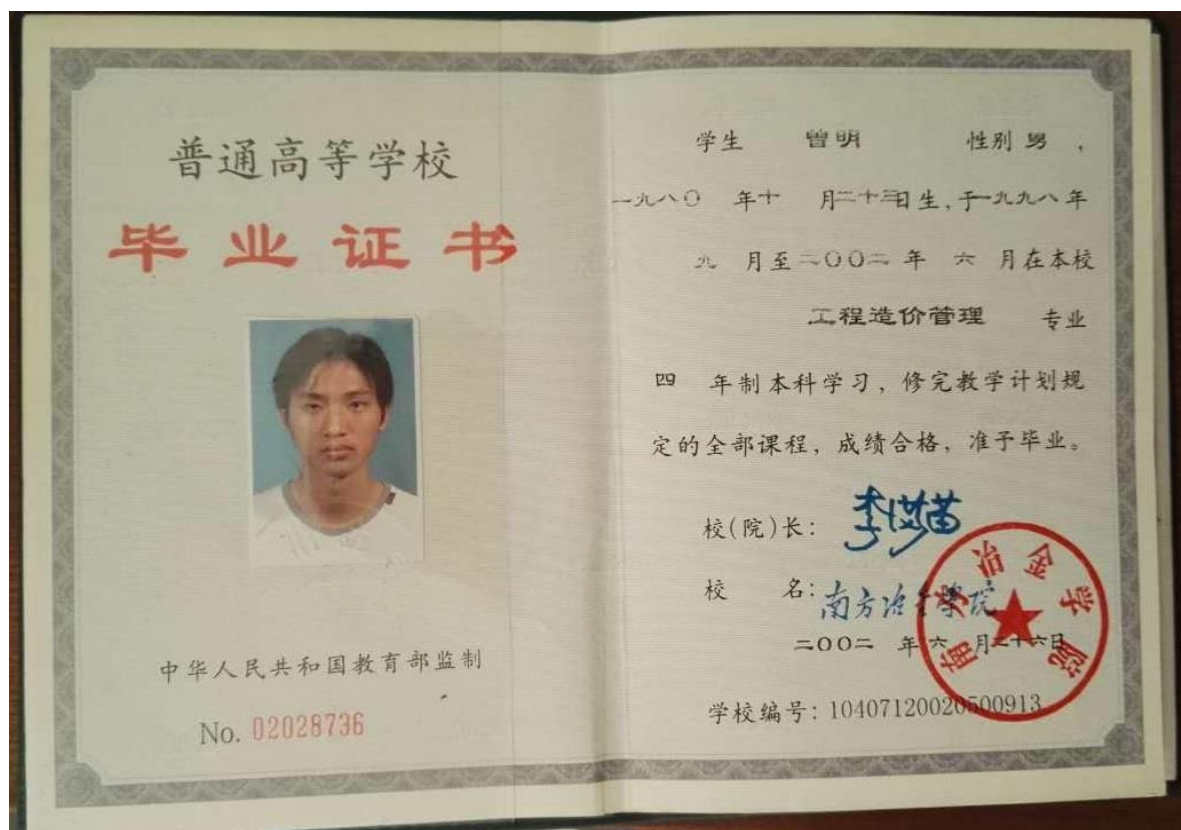 普通高等学校
毕业证书
中华人民共和国教育部监制
No. 02028736
学生 曾明 性别 男 ,
一九八〇 年十 月二十三日生,于一九九八年
九 月至二〇〇二 年 六 月在本校
工程造价管理 专业
四 年制本科学习，修完教学计划规
定的全部课程，成绩合格，准予毕业。
校(院)长：
校 名：南方冶金学院
二〇〇二 年六 月二十六日
学校编号：10407120020500913
南方冶金学院